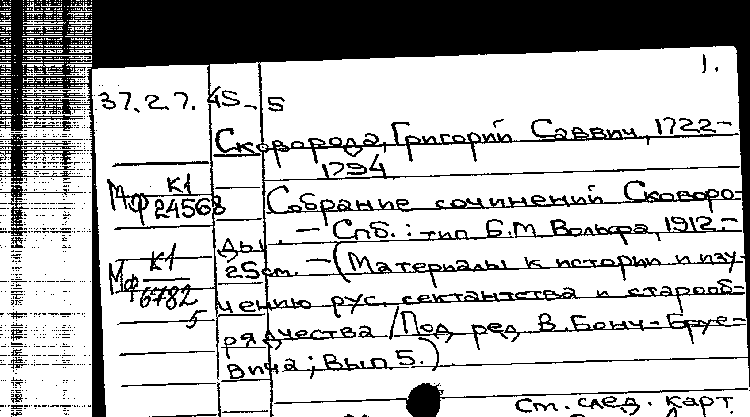 1.
37.2.7.45-5
Сковорода, Григорий Саввич, 1722-
1794
Мф К1
24568
Собрание сочинений Сковоро-
ды. – Спб.: тип Б.М Вольфа, 1912.-
25cm. – (Материалы к истории и изу-
Мф К1
6782
5
чению рус. сектантства и старооб-
рядчества / Под ред В. Бонч-Бруе-
вича; Вып 5.)
См. след. карт.